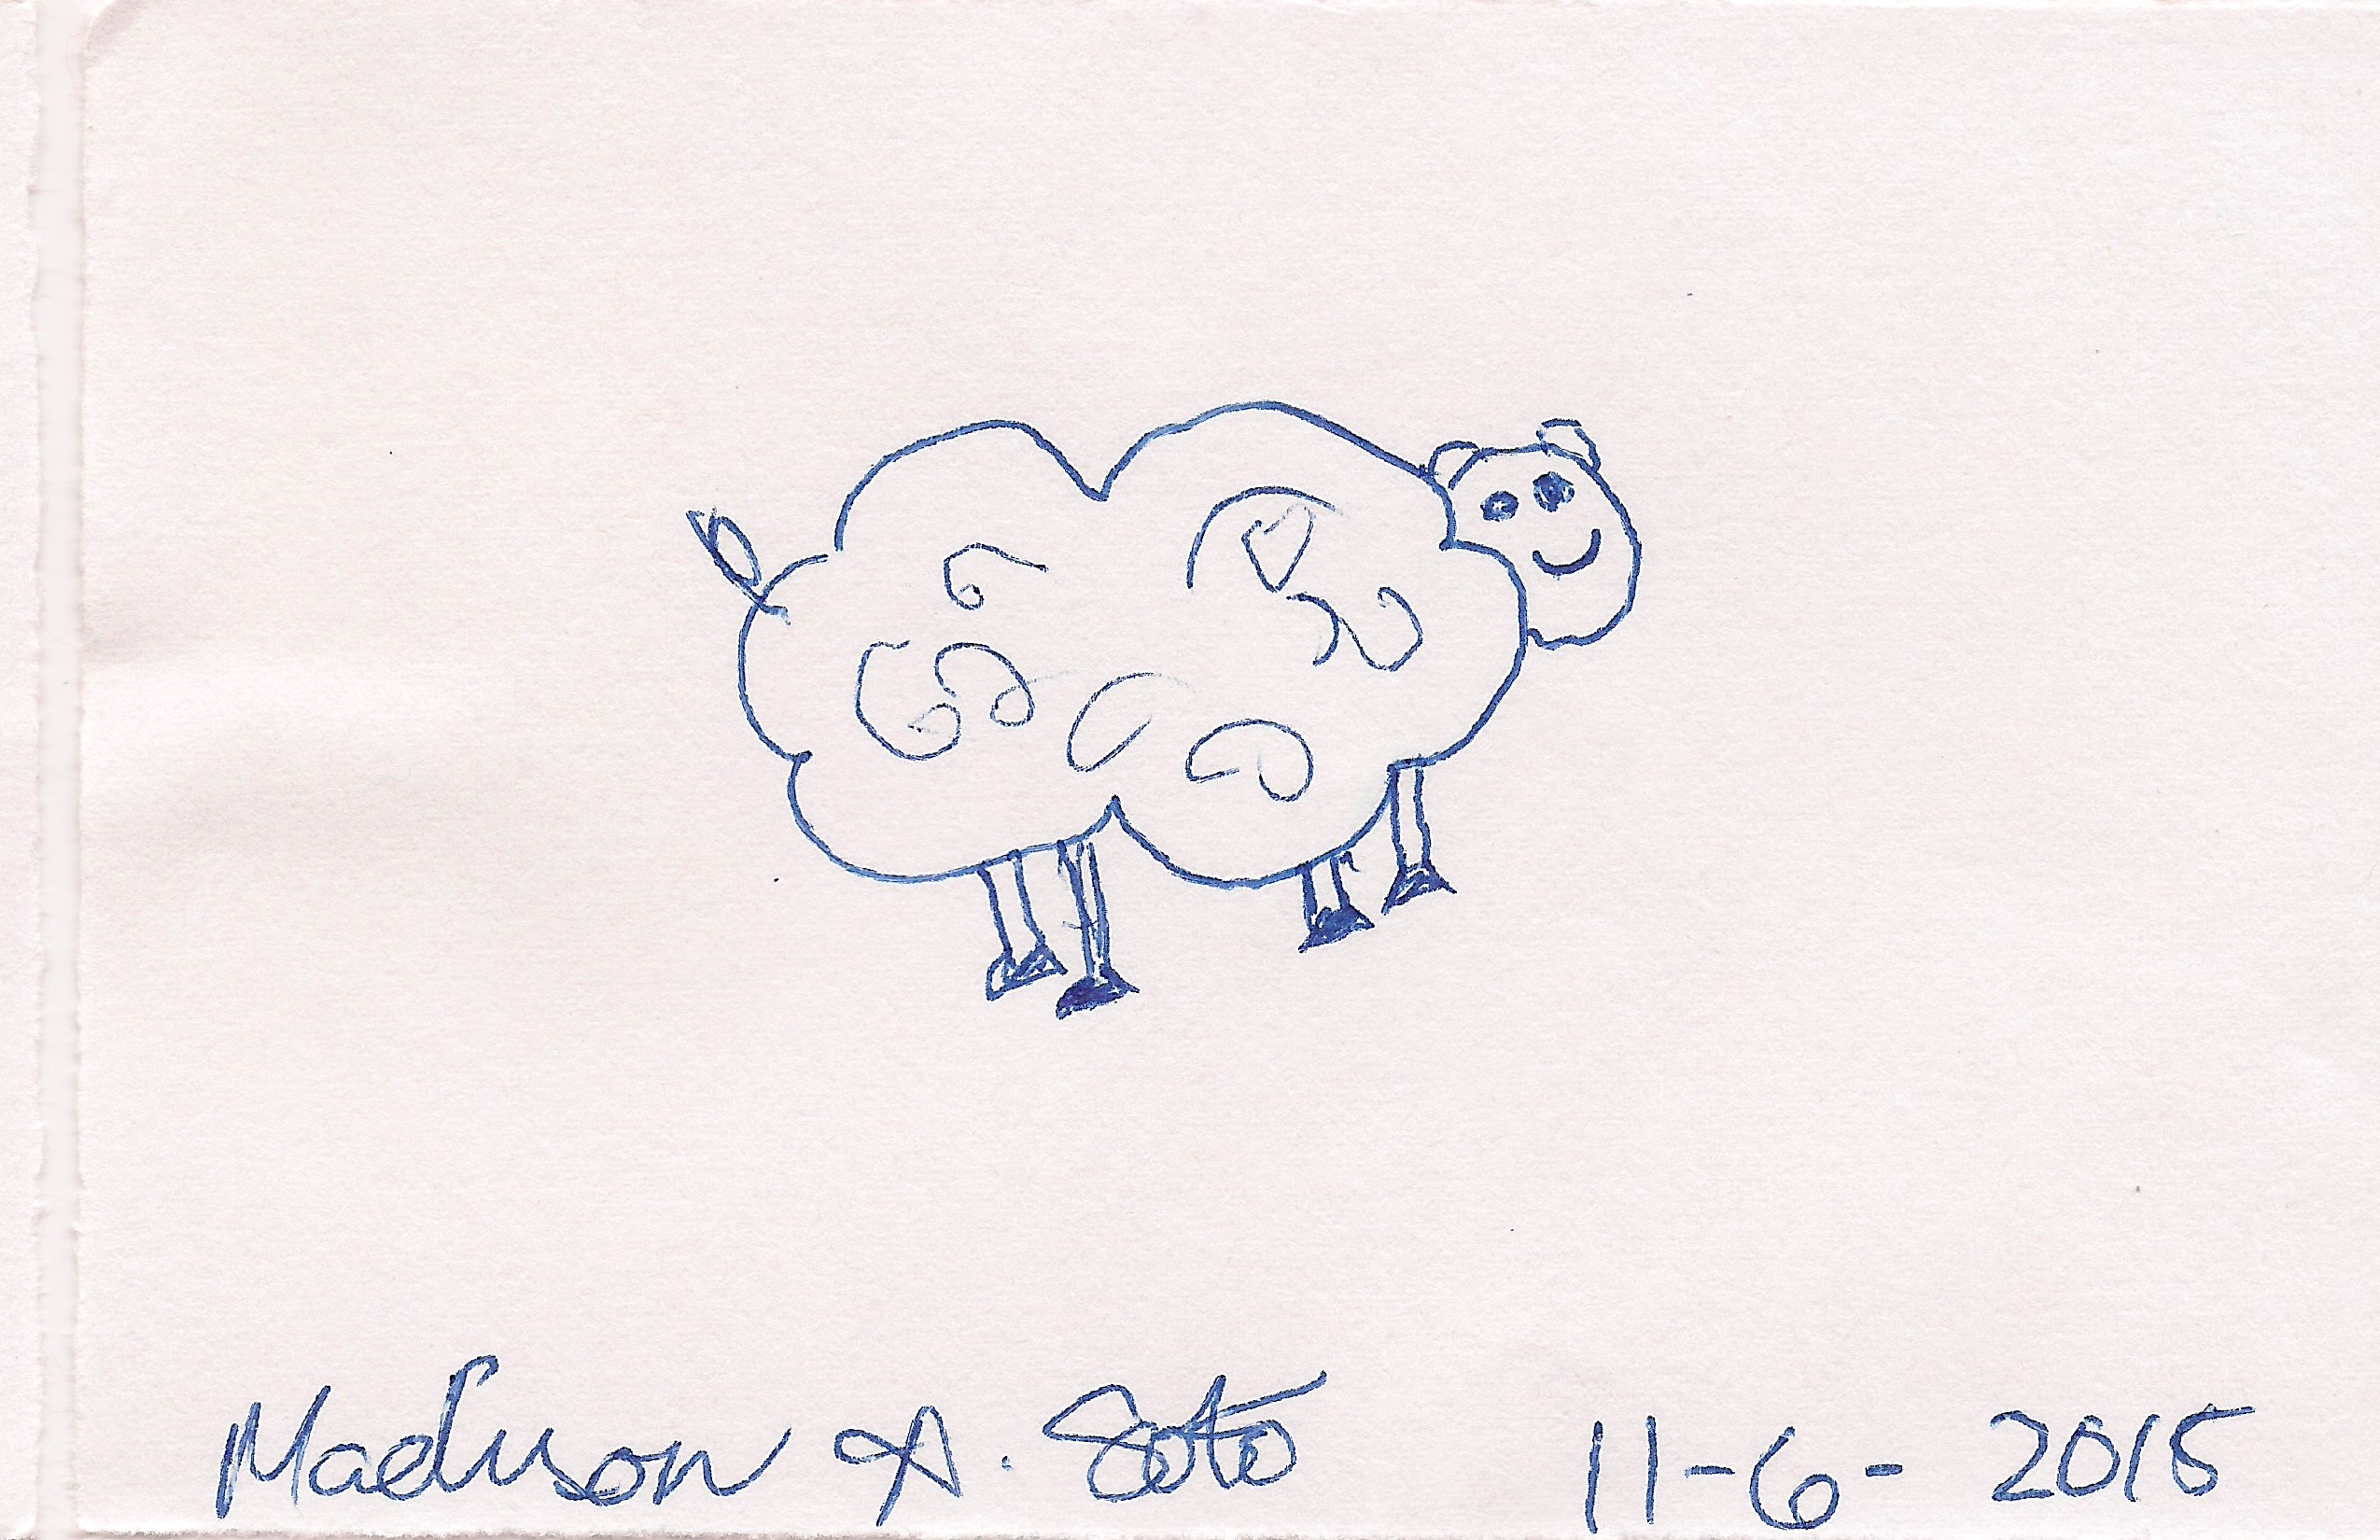 Madison A. Soto 11-6-2015